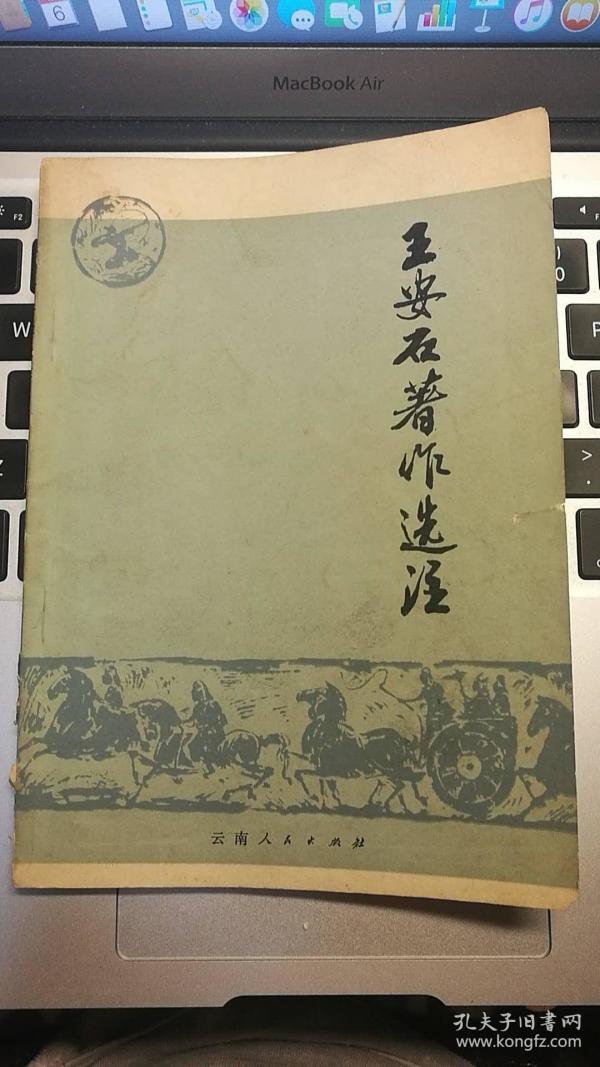 6
MacBook Air
F2
W
P
Z
>
王安石著作选注
云南人民出版社
孔夫子旧書网
www.kongfz.com